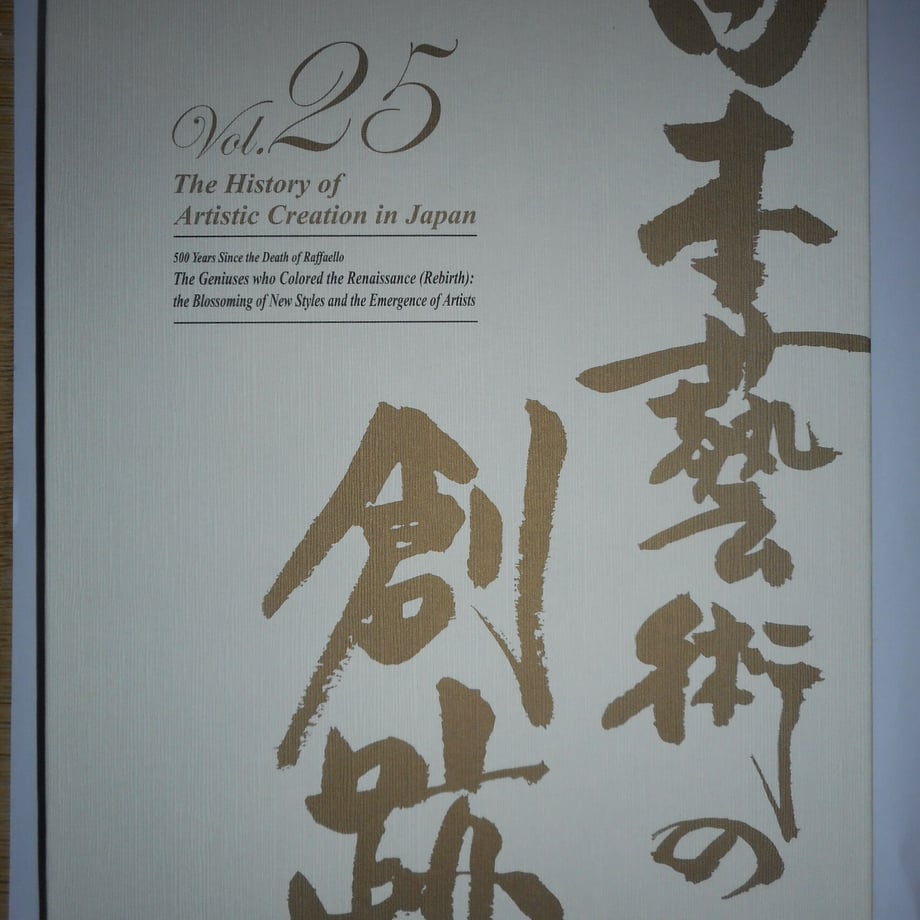 Vol. 25
The History of
Artistic Creation in Japan
500 Years Since the Death of Raffaello
The Geniuses who Colored the Renaissance (Rebirth):
the Blossoming of New Styles and the Emergence of Artists
日本藝術の
創跡